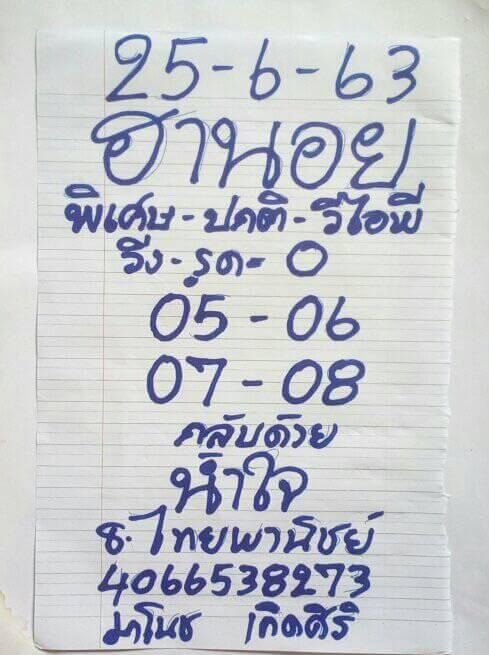 25-6-63
ฮานอย
พิเศษ-ปกติ-วีไอพี
วิ่ง-รูด=0
05-06
07-08
กลับด้วย
น้ำใจ
ธ.ไทยพานิชย์
4066538273
มาโนช เกิดศิริ